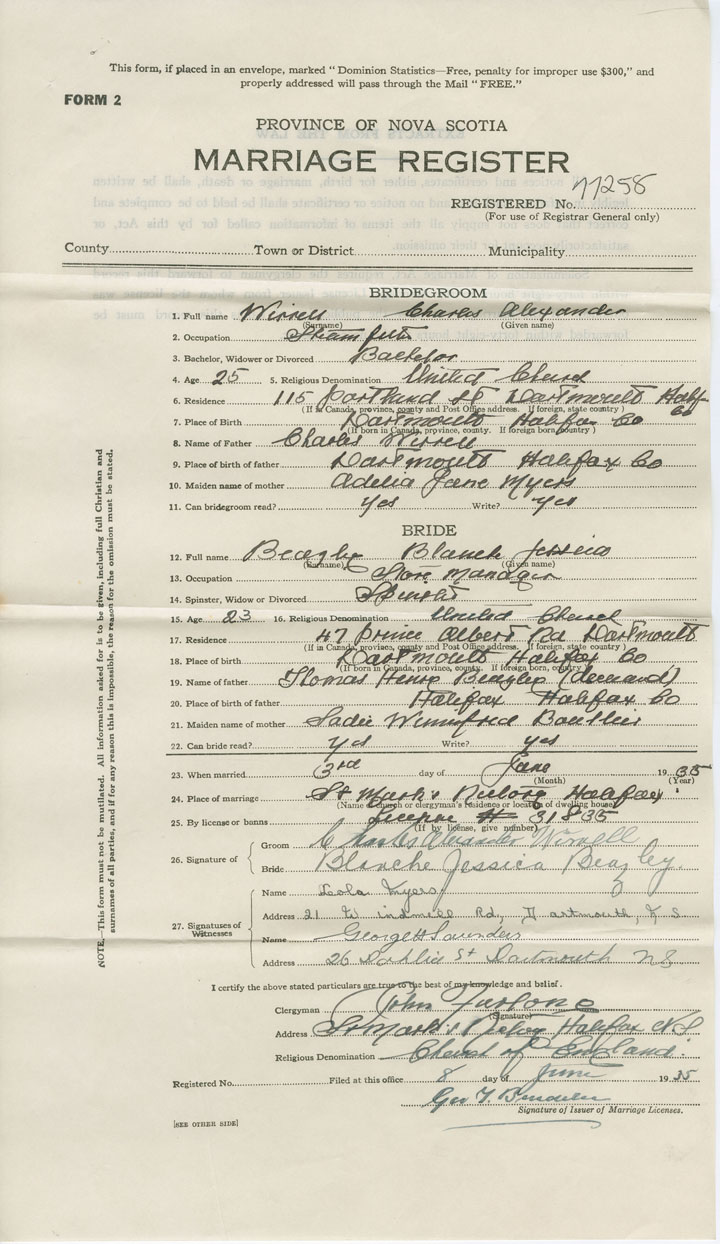 This form, if placed in an envelope, marked "Dominion Statistics—Free, penalty for improper use $300," and
properly addressed will pass through the Mail "FREE."
FORM 2
PROVINCE OF NOVA SCOTIA
MARRIAGE REGISTER
REGISTERED No. 77258
(For use of Registrar General only)
County Town or District Municipality
BRIDEGROOM
1. Full name Wirrell Charles Alexander
(Surname) (Given name)
2. Occupation Steam fitter
3. Bachelor, Widower or Divorced Bachelor
4. Age 25 5. Religious Denomination United Church
6. Residence 115 Portland St Dartmouth Halifax Co
(If in Canada, province, county and Post Office address. If foreign, state country)
7. Place of Birth Dartmouth Halifax Co
(If born in Canada, province, county. If foreign born country)
8. Name of Father Charles Wirrell
9. Place of birth of father Dartmouth Halifax Co
10. Maiden name of mother Adelia Jane Myers
11. Can bridegroom read? yes Write? yes
BRIDE
12. Full name Beazley Blanch Jessica
(Surname) (Given name)
13. Occupation Store Manager
14. Spinster, Widow or Divorced Spinster
15. Age 23 16. Religious Denomination United Church
17. Residence 47 Prince Albert Rd Dartmouth
(If in Canada, province, county and Post Office address. If foreign, state country)
18. Place of birth Dartmouth Halifax Co
(If born in Canada, province, county. If foreign born country)
19. Name of father Thomas Henry Beazley (deceased)
20. Place of birth of father Halifax Halifax Co
21. Maiden name of mother Sadie Winnifred Boutlier
22. Can bride read? yes Write? yes
23. When married 3rd day of June 1935
(Month) (Year)
24. Place of marriage St Mark's Rectory Halifax
(Name of church or clergyman's residence or location of dwelling house)
25. By license or banns License # 31835
(If by license, give number)
26. Signature of
Groom Charles Alexander Wirrell
Bride Blanche Jessica Beazley.
27. Signatures of Witnesses
Name Lola Myers
Address 21 Windmill Rd, Dartmouth, N S
Name George H Saunders
Address 26 Dahlia St Dartmouth NS
I certify the above stated particulars are true to the best of my knowledge and belief.
Clergyman John Furlong
(Signature)
Address St Mark's Rectory Halifax N S
Religious Denomination Church of England.
Registered No. Filed at this office 8 day of June 1935
Geo T.
Signature of Issuer of Marriage Licenses.
[SEE OTHER SIDE]
NOTE.—This form must not be mutilated. All information asked for is to be given, including full Christian and
surnames of all parties, and if for any reason this is impossible, the reason for the omission must be stated.